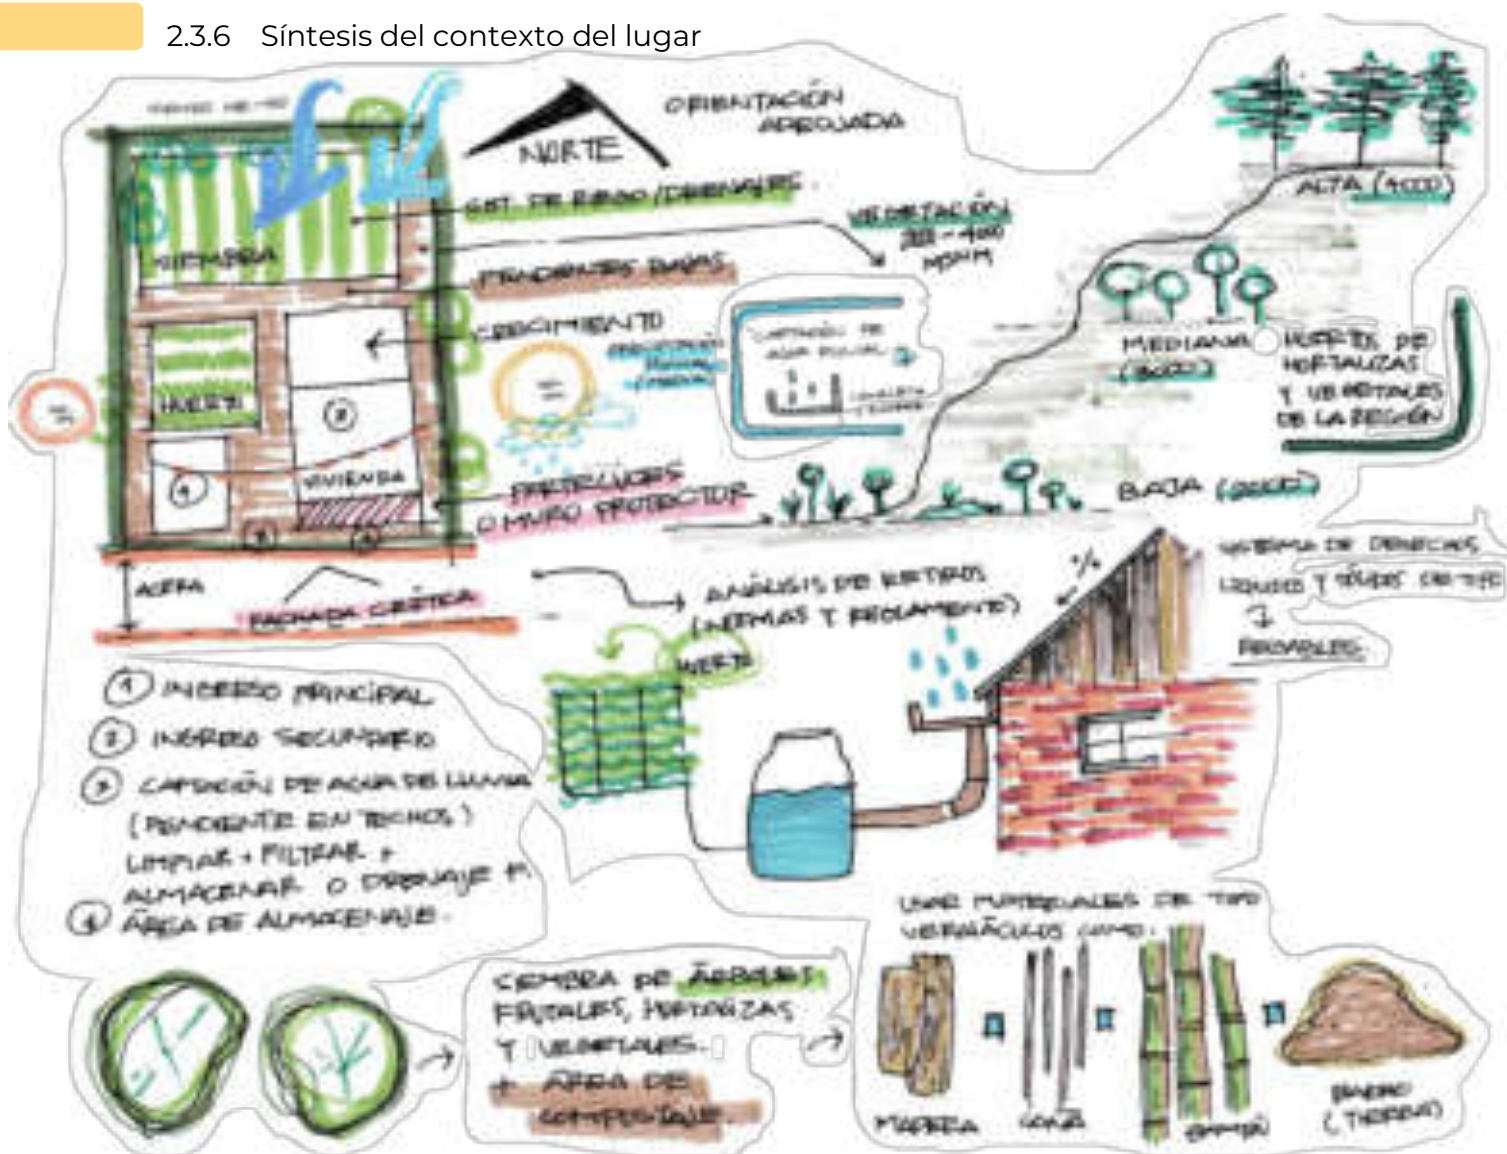 2.3.6 Síntesis del contexto del lugar
ORIENTACIÓN
ADECUADA
NORTE
SIST. DE RIEGO/DRENAJES
VEGETACIÓN
- 4000
MSNM
ALTA (4000)
SIEMBRA
PENDIENTES BAJAS
CRECIMIENTO
CAPTACIÓN DE
AGUA PLUVIAL
MEDIANA
(3000)
HUERTOS DE
HORTALIZAS
Y VEGETALES
DE LA REGIÓN
HUERTO
3
4
VIVIENDA
PARTELUCES
O MURO PROTECTOR
BAJA (2000)
ACERA
FACHADA CRÍTICA
ANÁLISIS DE RETIROS
(NORMAS Y REGLAMENTO)
%
SISTEMA DE DESECHOS
LÍQUIDOS Y SÓLIDOS
HUERTO
1 INGRESO PRINCIPAL
2 INGRESO SECUNDARIO
3 CAPTACIÓN DE AGUA DE LLUVIA
(PENDIENTE EN TECHOS)
LIMPIAR + FILTRAR +
ALMACENAR O DRENAJE
4 ÁREA DE ALMACENAJE.
USAR MATERIALES DE TIPO
VERNÁCULOS COMO:
SIEMBRA DE ÁRBOLES
FRUTALES, HORTALIZAS
Y VEGETALES.
+ ÁREA DE
COMPOSTAJE.
MADERA
CAÑA
BAMBÚ
BARRO
(TIERRA)